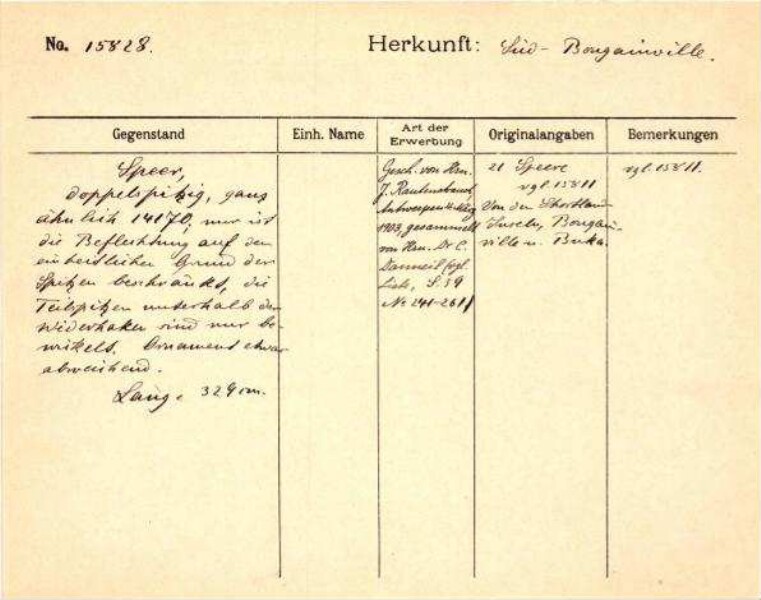 No. 15828.
Herkunft: Süd-Bougainville.
Gegenstand
Einh. Name
Art der Erwerbung
Originalangaben
Bemerkungen
Speer,
doppelspitzig, ganz
ähnlich 14170, nur ist
die Beflechtung auf den
einheitlichen Grund der
Spitzen beschränkt, die
Teilspitzen unterhalb der
Widerhaken sind nur be-
wickelt. Ornament etwas
abweichend.
Länge 329 cm.
Gesch. von Hrn.
J. Rautenstrauch
Antwerpen
1903, gesammelt
von Hrn. Dr C.
Danneil (vgl.
Liste, S. 59
No 241-261)
21 Speere
vgl. 15811
Von den Shortland
Inseln, Bougain-
ville u. Buka.
vgl. 15811.